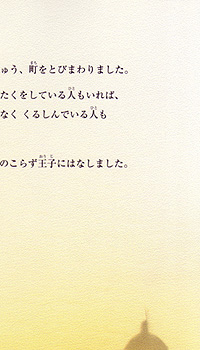 ゅう、町をとびまわりました。
たくをしている人もいれば、
なく くるしんでいる人も
のこらず王子にはなしました。